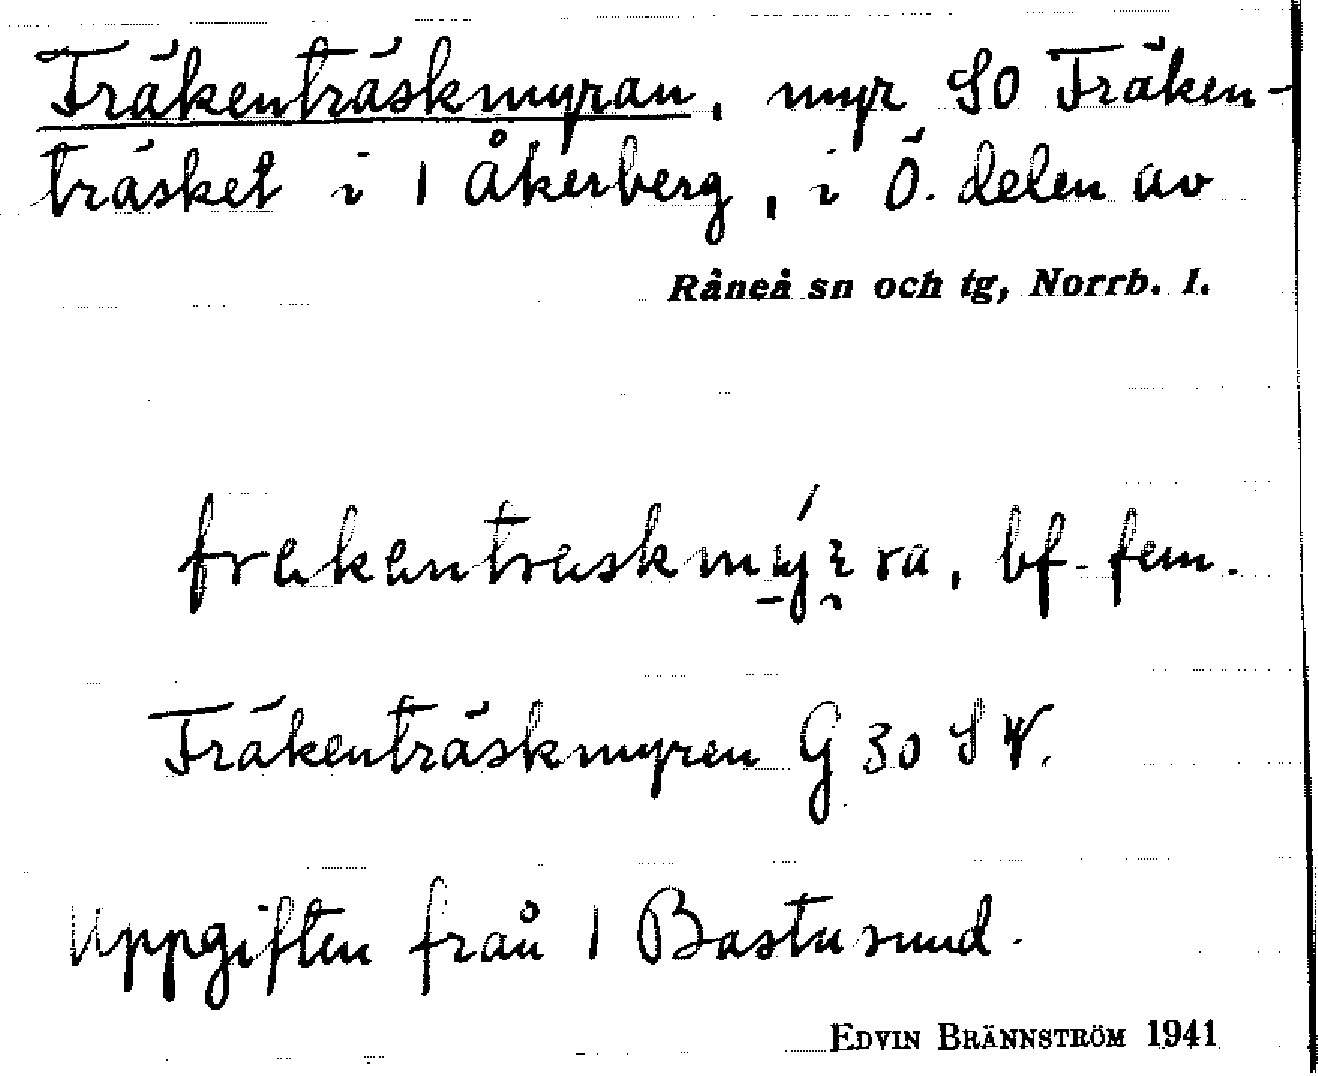 Fräkenträskmyran, myr SO Fräken-
träsket i 1 Åkerberg, i Ö. delen av
Råneå sn och tg, Norrb. l.
frekentreskmýrra, bf. fem.
Fräkenträskmyren G 30 SV.
Uppgiften från 1 Bastusund.
EDVIN BRÄNNSTRÖM 1941